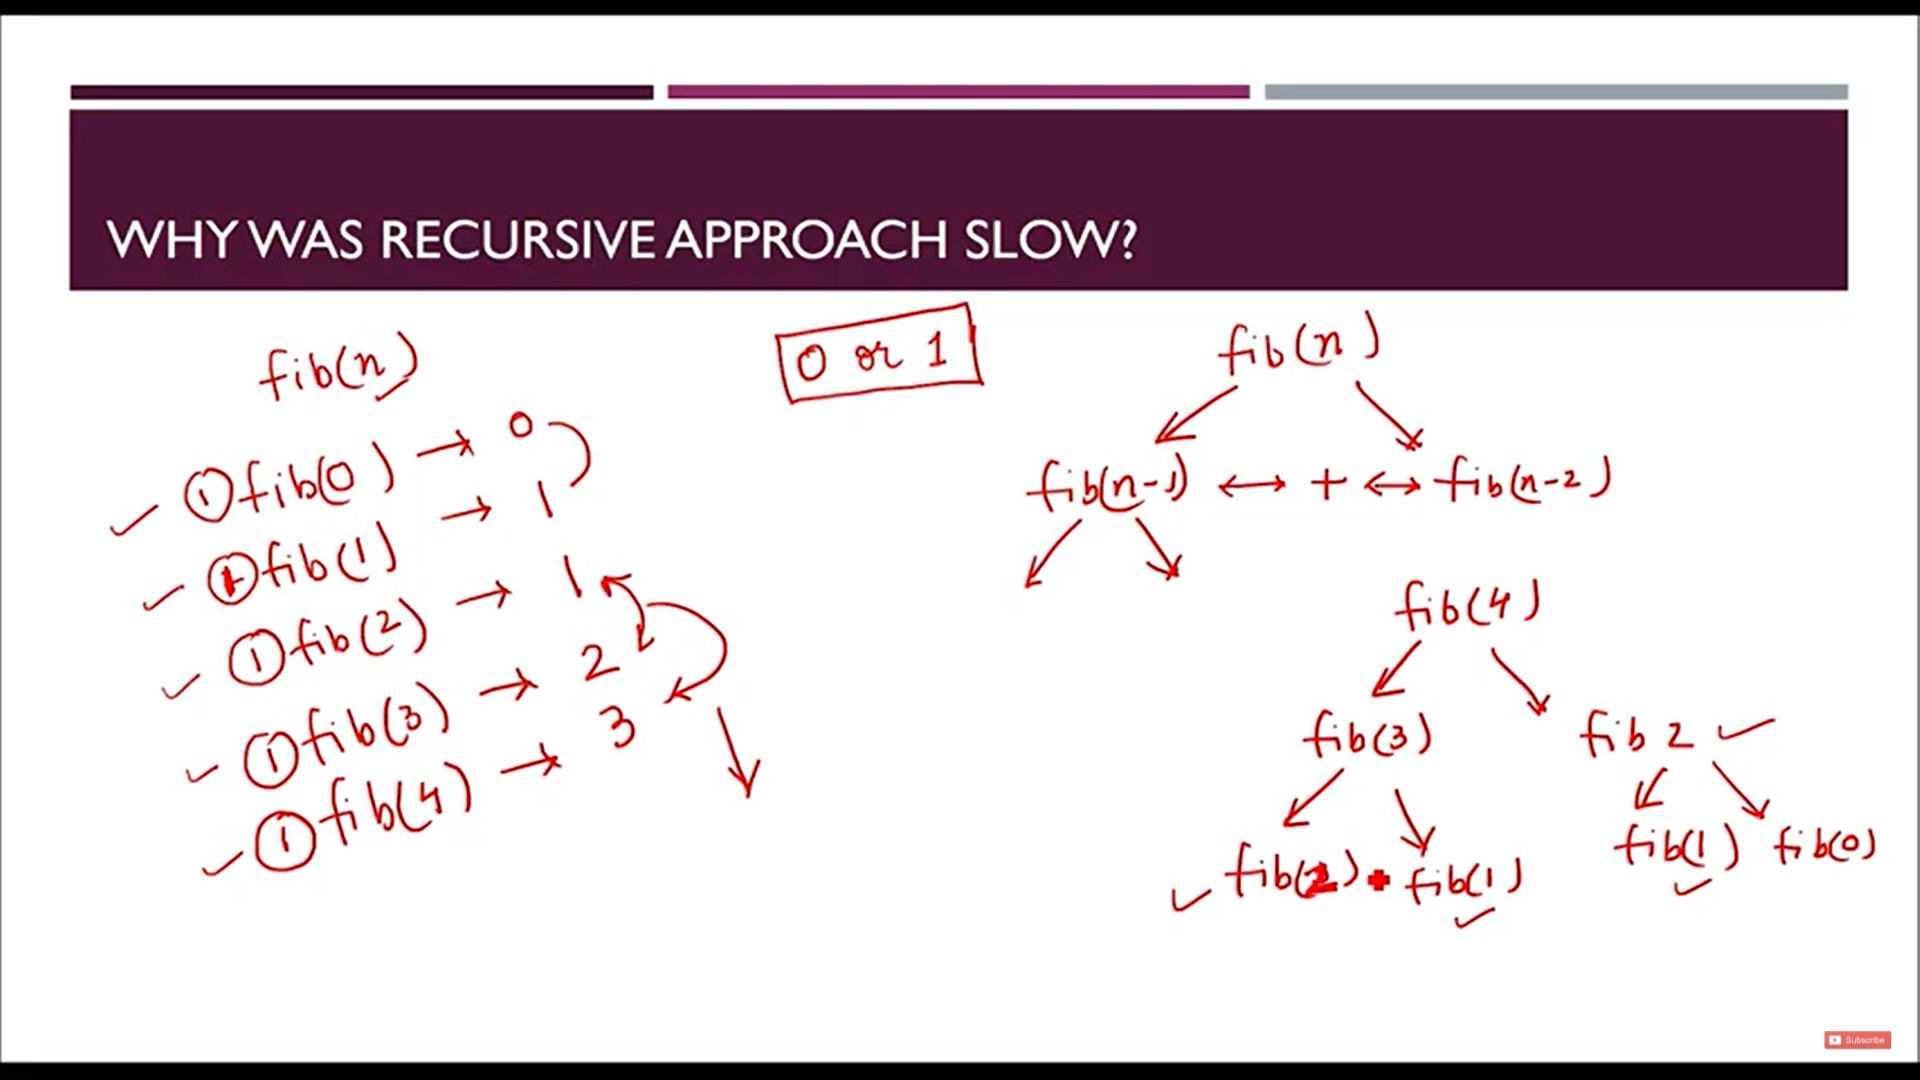 WHY WAS RECURSIVE APPROACH SLOW?
fib(n)
① fib(0) → 0
① fib(1) → 1
① fib(2) → 1
① fib(3) → 2
① fib(4) → 3
0 or 1
fib(n)
fib(n-1) ↔ + ↔ fib(n-2)
fib(4)
fib(3) fib 2
fib(2) + fib(1) fib(1) fib(0)
Subscribe